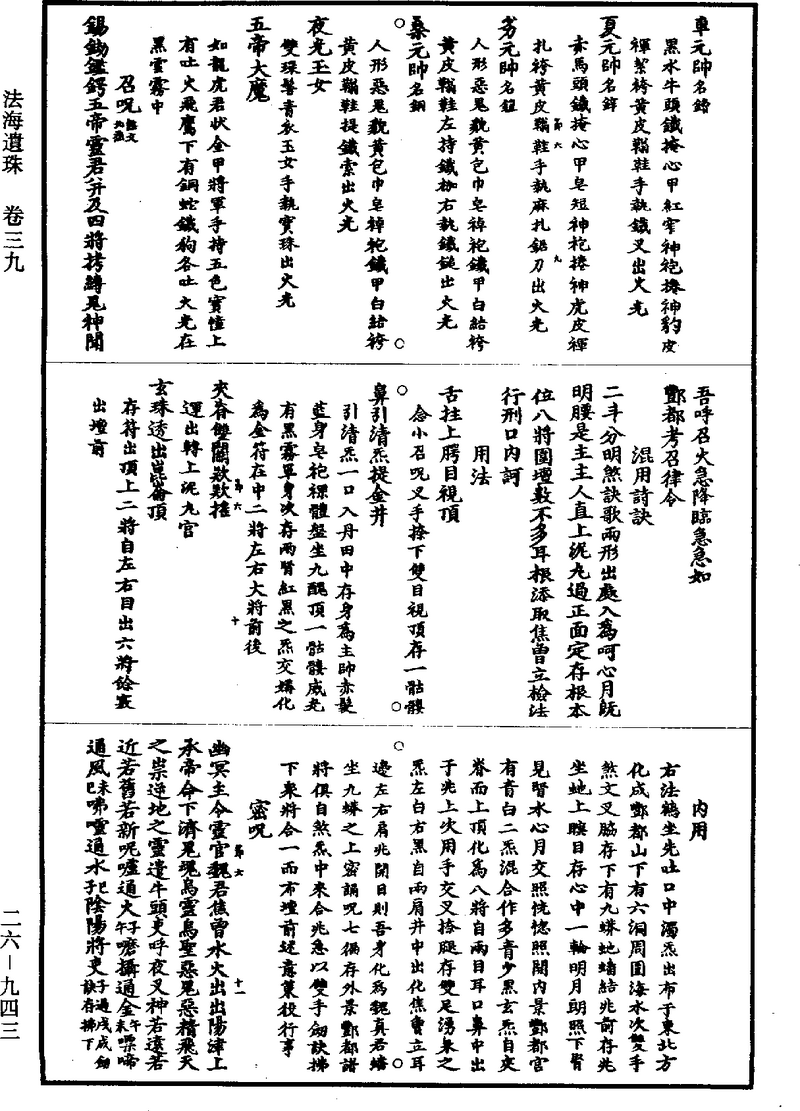 法海遺珠 卷三九
二六－九四三
車元帥名鐇
黑水牛頭鐵掩心甲紅窄神袍捲神豹皮
褌絜袴黃皮鞝鞋手執鐵叉出火光
夏元帥名鋅
赤馬頭鐵掩心甲皂短神袍捲神虎皮褌
扎袴黃皮鞝鞋手執麻扎鋸刀出火光
第六 九
勞元帥名鈕
人形惡鬼貌黃包巾皂禪袍鐵甲白結袴
黃皮鞝鞋左持鐵枷右執鐵鎚出火光
桑元帥名鋼
人形惡鬼貌黃包巾皂禪袍鐵甲白結袴
黃皮鞝鞋提鐵索出火光
夜光玉女
雙珠髻青衣玉女手執寶珠出火光
五帝大魔
如龍虎君狀金甲將軍手持五色寶幢上
有吐火飛鷹下有銅蛇鐵狗各吐火光在
黑雲霧中
召呪
五帝靈君并及四將拷縛鬼神聞
吾呼召火急降臨急急如
酆都考召律令
混用詩訣
二斗分明煞訣歌兩形出處入為呵心月既
明腰是主主人直上泥丸過正面定存根本
位八將圍壇數不多耳根添取焦曾立檢法
行刑口內訶
用法
舌拄上腭目視頂
念小召呪叉手撩下雙目視頂存一骷髏
鼻引清炁提金井
引清炁一口入丹田中存身為主帥赤髮
藍身皂袍裸體盤坐九醜頂一骷髏威光
有黑霧罩身次存兩腎紅黑之炁交媾化
為金符在中二將左右大將前後
夾脊雙關欻欻搖
第六 十
運出轉上泥丸宮
玄珠透出崑崙頂
存符出頂上二將自左右目出六將餘竅
出壇前
內用
右法鶴坐先吐口中濁炁出布于東北方
化成酆都山下有六洞周圍海水次雙手
煞文叉脇存下有九蟒地蜡結兆前存兆
坐蛇上瞑目存心中一輪明月朗照下腎
見腎水心月交照恍惚照開內景酆都宮
有青白二炁混合作多青少黑玄炁自夾
脊而上頂化為八將自兩目耳口鼻中出
于兆上次用手交叉捨腿存雙足湧泉之
炁左白右黑自兩肩井中出化焦曹立耳
邊左右肩兆開目則吾身化為魏真君蟠
坐九蟒之上密誦呪七徧存外景酆都諸
將俱自煞炁中來合兆急以雙手劍訣拂
下衆將合一而布壇前述意稟役行事
密呪
幽冥主令靈官魏君焦曾水火出出陽津上
第六 十一
承帝命下濟鬼魂鳥靈鳥聖惡鬼惡精飛天
之祟逆地之靈遣牛頭吏呼夜叉神若遠若
近若舊若新呪噓通火午子嚒攝通金午未噗啼
通風未巳咈噓通水子巳陰陽將吏子過戌成劍訣存拂下